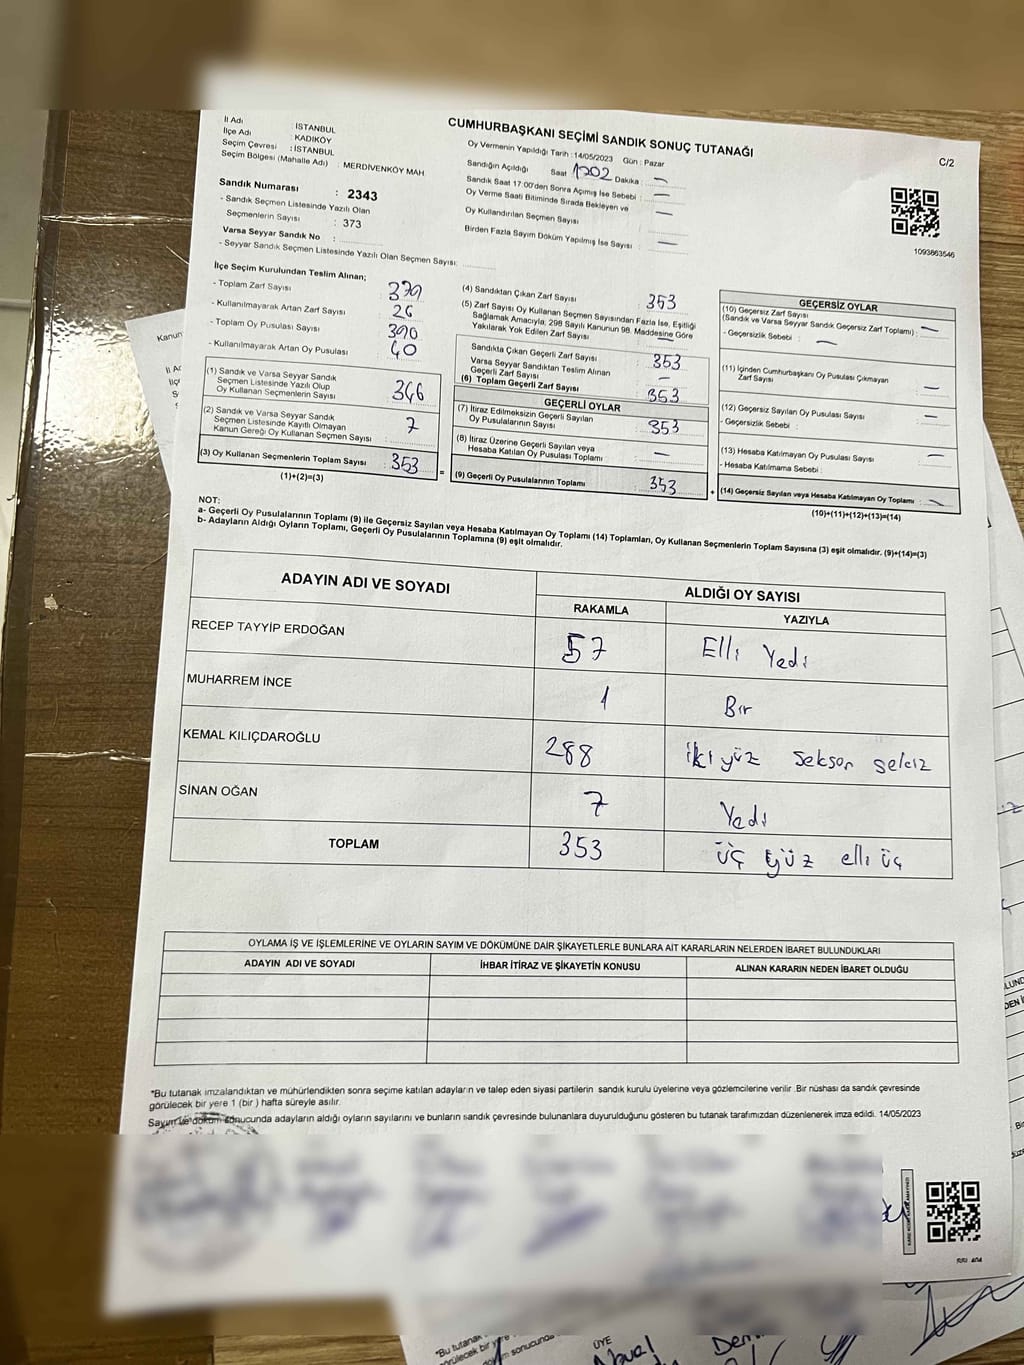 CUMHURBAŞKANI SEÇİMİ SANDIK SONUÇ TUTANAĞI
C/2
İl Adı : İSTANBUL
İlçe Adı : KADIKÖY
Seçim Çevresi : İSTANBUL
Seçim Bölgesi (Mahalle Adı) : MERDİVENKÖY MAH
Sandık Numarası : 2343
- Sandık Seçmen Listesinde Yazılı Olan
Seçmenlerin Sayısı : 373
Varsa Seyyar Sandık No :
- Seyyar Sandık Seçmen Listesinde Yazılı Olan Seçmen Sayısı:
Oy Vermenin Yapıldığı Tarih : 14/05/2023 Gün : Pazar
Sandığın Açıldığı Saat 1702 Dakika : —
Sandık Saat 17:00'den Sonra Açımış İse Sebebi : —
Oy Verme Saati Bitiminde Sırada Bekleyen ve
Oy Kullandırılan Seçmen Sayısı —
Birden Fazla Sayım Döküm Yapılmış İse Sayısı : —
1093863546
İlçe Seçim Kurulundan Teslim Alınan;
- Toplam Zarf Sayısı : 379
- Kullanılmayarak Artan Zarf Sayısı : 26
- Toplam Oy Pusulası Sayısı : 390
- Kullanılmayarak Artan Oy Pusulası 40
(1) Sandık ve Varsa Seyyar Sandık
Seçmen Listesinde Yazılı Olup
Oy Kullanan Seçmenlerin Sayısı : 346
(2) Sandık ve Varsa Seyyar Sandık
Seçmen Listesinde Kayıtlı Olmayan
Kanun Gereği Oy Kullanan Seçmen Sayısı : 7
(3) Oy Kullanan Seçmenlerin Toplam Sayısı : 353
(1)+(2)=(3)
(4) Sandıktan Çıkan Zarf Sayısı : 353
(5) Zarf Sayısı Oy Kullanan Seçmen Sayısından Fazla İse, Eşitliği
Sağlamak Amacıyla, 298 Sayılı Kanunun 98. Maddesine Göre
Yakılarak Yok Edilen Zarf Sayısı : —
Sandıkta Çıkan Geçerli Zarf Sayısı : 353
Varsa Seyyar Sandıktan Teslim Alınan
Geçerli Zarf Sayısı : —
(6) Toplam Geçerli Zarf Sayısı : 353
GEÇERLİ OYLAR
(7) İtiraz Edilmeksizin Geçerli Sayılan
Oy Pusulalarının Sayısı : 353
(8) İtiraz Üzerine Geçerli Sayılan veya
Hesaba Katılan Oy Pusulası Toplamı : —
= (9) Geçerli Oy Pusulalarının Toplamı : 353
GEÇERSİZ OYLAR
(10) Geçersiz Zarf Sayısı
(Sandık ve Varsa Seyyar Sandık Geçersiz Zarf Toplamı) : —
- Geçersizlik Sebebi : —
(11) İçinden Cumhurbaşkanı Oy Pusulası Çıkmayan
Zarf Sayısı : —
(12) Geçersiz Sayılan Oy Pusulası Sayısı : —
- Geçersizlik Sebebi :
(13) Hesaba Katılmayan Oy Pusulası Sayısı : —
- Hesaba Katılmama Sebebi :
+ (14) Geçersiz Sayılan veya Hesaba Katılmayan Oy Toplamı : —
(10)+(11)+(12)+(13)=(14)
NOT:
a- Geçerli Oy Pusulalarının Toplamı (9) ile Geçersiz Sayılan veya Hesaba Katılmayan Oy Toplamı (14) Toplamları, Oy Kullanan Seçmenlerin Toplam Sayısına (3) eşit olmalıdır. (9)+(14)=(3)
b- Adayların Aldığı Oyların Toplamı, Geçerli Oy Pusulalarının Toplamına (9) eşit olmalıdır.
ADAYIN ADI VE SOYADI ALDIĞI OY SAYISI
RAKAMLA YAZIYLA
RECEP TAYYİP ERDOĞAN 57 Elli Yedi
MUHARREM İNCE 1 Bir
KEMAL KILIÇDAROĞLU 288 iki yüz seksen sekiz
SİNAN OĞAN 7 Yedi
TOPLAM 353 üç yüz elli üç
OYLAMA İŞ VE İŞLEMLERİNE VE OYLARIN SAYIM VE DÖKÜMÜNE DAİR ŞİKAYETLERLE BUNLARA AİT KARARLARIN NELERDEN İBARET BULUNDUKLARI
ADAYIN ADI VE SOYADI İHBAR İTİRAZ VE ŞİKAYETİN KONUSU ALINAN KARARIN NEDEN İBARET OLDUĞU
*Bu tutanak imzalandıktan ve mühürlendikten sonra seçime katılan adayların ve talep eden siyasi partilerin sandık kurulu üyelerine veya gözlemcilerine verilir. Bir nüshası da sandık çevresinde
görülecek bir yere 1 (bir) hafta süreyle asılır.
Sayım ve döküm sonucunda adayların aldığı oyların sayılarını ve bunların sandık çevresinde bulunanlara duyurulduğunu gösteren bu tutanak tarafımızdan düzenlenerek imza edildi. 14/05/2023
Kanun
*Bu tutanak
görülecek bir yere
sonucunda
ÜYE